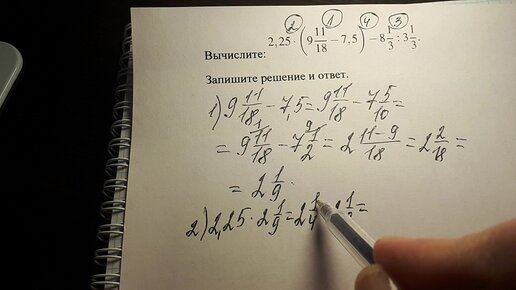 2 1 4 3
2,25 · (9 11/18 − 7,5) − 8 1/3 : 3 1/3.
Вычислите:
Запишите решение и ответ.
1) 9 11/18 − 7,5 = 9 11/18 − 7 5/10 =
= 9 11/18 − 7 1/2 = 2 11−9/18 = 2 2/18 =
= 2 1/9.
2) 2,25 · 2 1/9 = 2 1/4